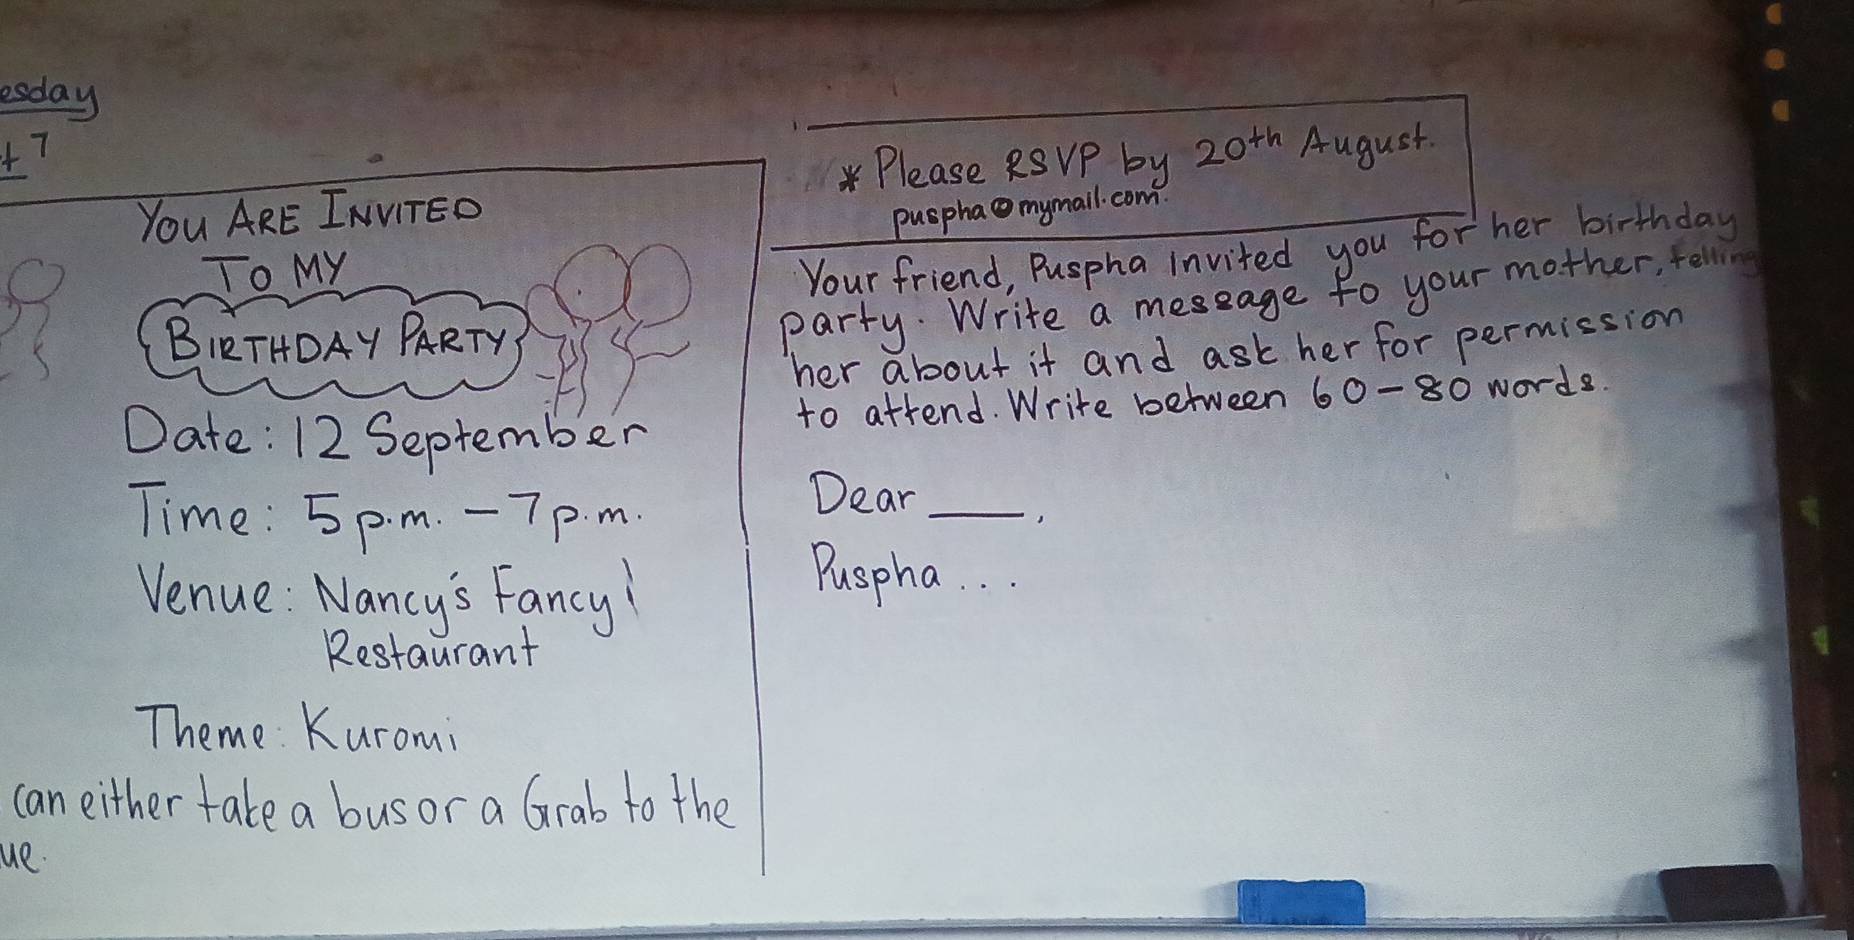 esday
+ 7
YOU ARE INVITED
TO MY
BIRTHDAY PARTY
Date: 12 September
Time: 5 p.m. - 7 p.m.
Venue: Nancy's Fancy!
Restaurant
Theme: Kuromi
can either take a bus or a Grab to the
ue.
* Please RSVP by 20th August.
puspha@mymail.com.
Your friend, Puspha invited you for her birthday
party. Write a message to your mother, telling
her about it and ask her for permission
to attend. Write between 60-80 words.
Dear ____,
Puspha ...